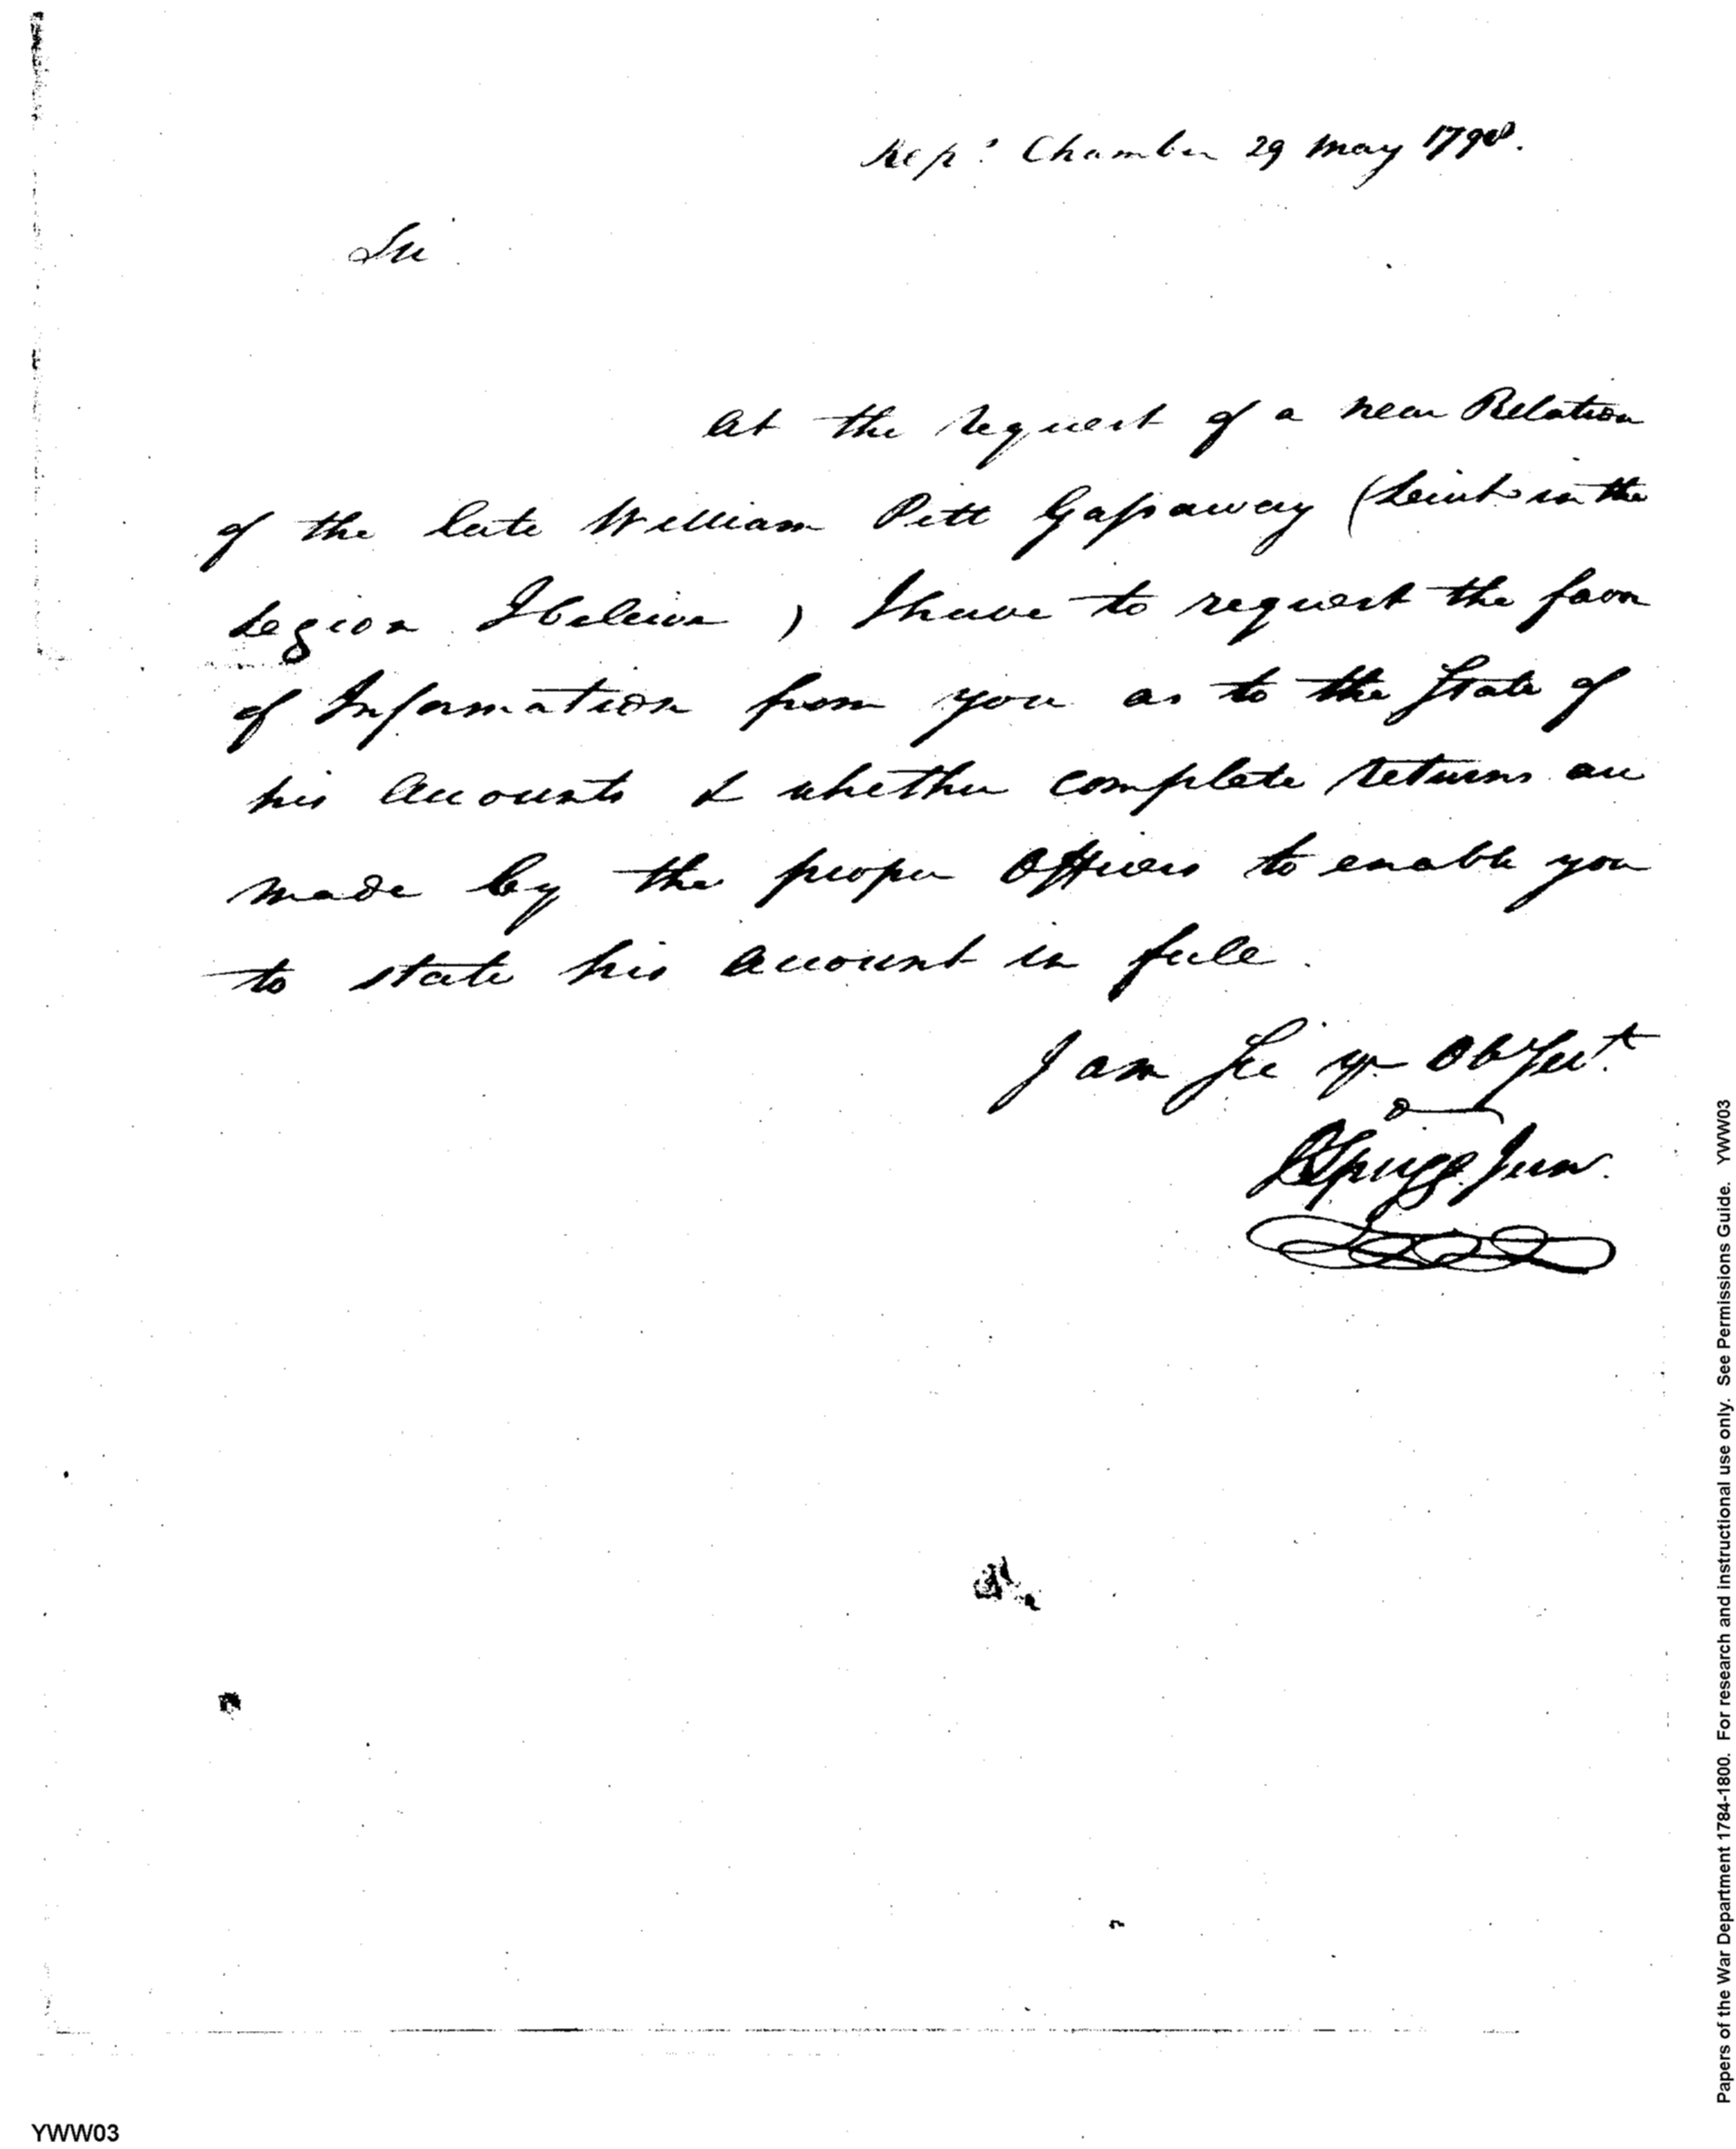 Reps. Chamber 29 May 1798.
Sir
At the request of a near Relation
of the late William Pitt Gassaway (Leiut in the
Legion I believe) I have to request the favor
of Information from you as to the State of
his Accounts & whether complete returns are
made by the proper Officers to enable you
to state his Account in full.
I am Sir yr Ob Sert
R Sprigg Junr.
Papers of the War Department 1784-1800. For research and instructional use only. See Permissions Guide. YWW03
YWW03